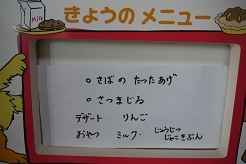 Milk
きょうのメニュー
○ さばの たったあげ
○ さつまじる
デザート りんご
おやつ ミルク・ じょうしつ
じゃこきぶん